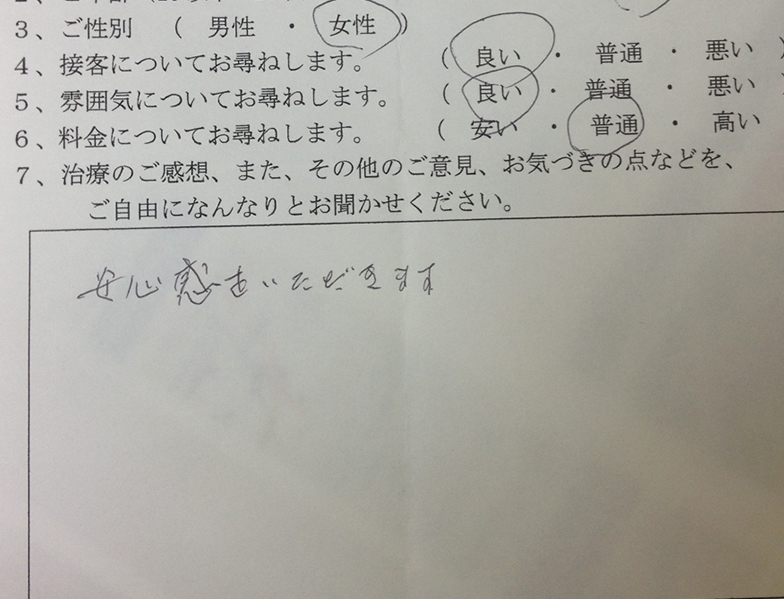 3、ご性別 ( 男性 ・ 女性 )
4、接客についてお尋ねします。 ( 良い ・ 普通 ・ 悪い )
5、雰囲気についてお尋ねします。 ( 良い ・ 普通 ・ 悪い
6、料金についてお尋ねします。 ( 安い ・ 普通 ・ 高い
7、治療のご感想、また、その他のご意見、お気づきの点などを、
ご自由になんなりとお聞かせください。
安心感をいただきます